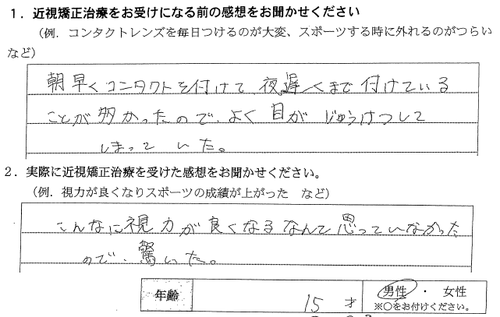 1．近視矯正治療をお受けになる前の感想をお聞かせください
（例．コンタクトレンズを毎日つけるのが大変、スポーツする時に外れるのがつらい
など）
朝早くコンタクトを付けて夜遅くまで付けている
ことが多かったので、よく目がじゅうけつして
しまっていた。
2．実際に近視矯正治療を受けた感想をお聞かせください。
（例．視力が良くなりスポーツの成績が上がった　など）
こんなに視力が良くなるなんて思っていなかった
ので、驚いた。
年齢　15才　男性・女性
※○をお付けください。